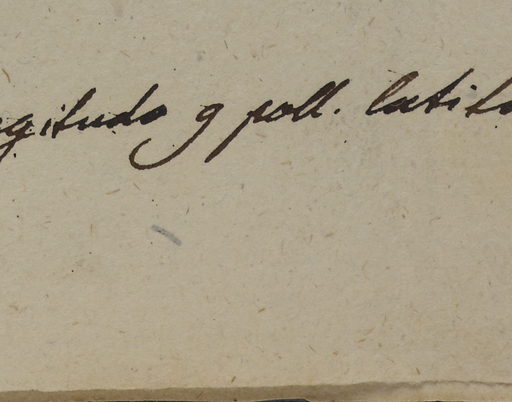 ngitudo 9 poll. latitu